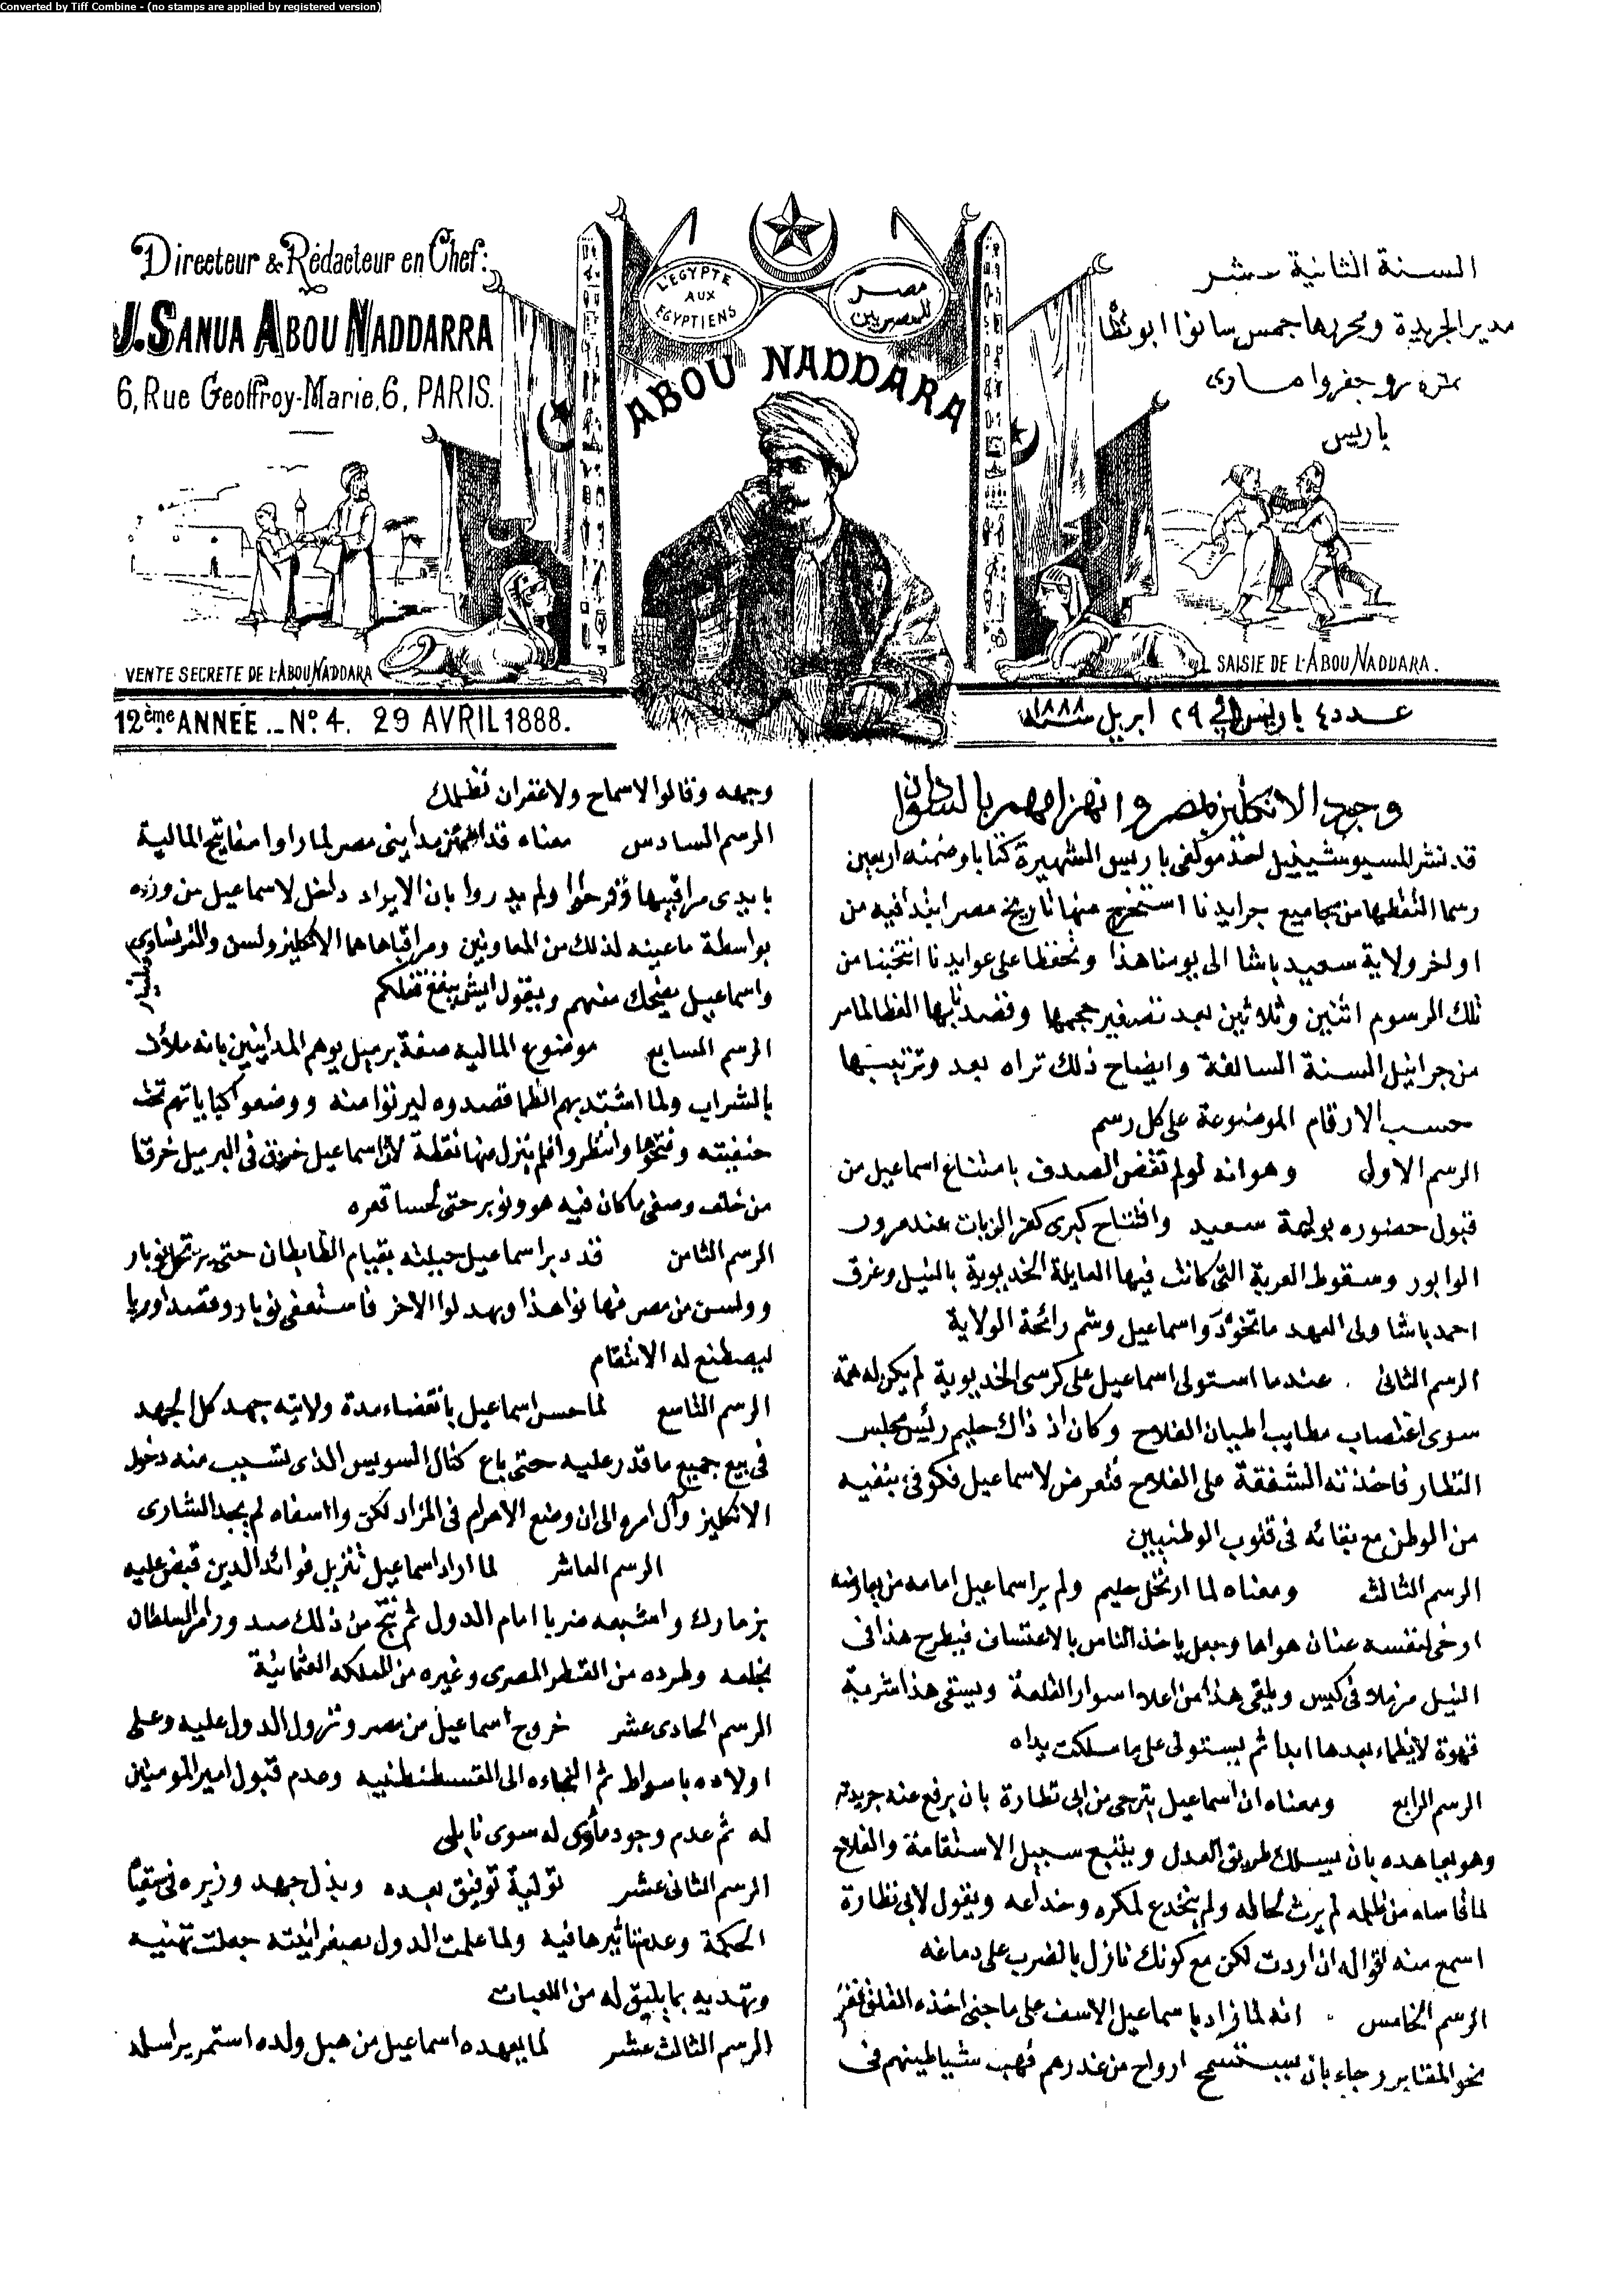 Converted by Tiff Combine - (no stamps are applied by registered version)
Directeur & Rédacteur en Chef:
J. SANUA ABOU NADDARRA
6, Rue Geoffroy-Marie, 6, PARIS.
L'EGYPTE
AUX
EGYPTIENS
مصر
للمصريين
ABOU NADDARA
السنة الثانية عشر
مدير الجريدة ومحررها جمس سانوا ابو نظا
نمره ٦ رو جفروا ماري
باريس
VENTE SECRETE DE L'ABOU NADDARA
SAISIE DE L'ABOU NADDARA.
12ème ANNÉE._ No. 4. 29 AVRIL 1888.
عدد ٤ باريس في ٢٩ ابريل سنة ١٨٨٨
وجود الانكليز بمصر وانهزامهم بالسودان
قد نشر المسيو احد مولفى باريس الشهيرة كتابا وضمنه اربعين
رسما التقطها من مجاميع جرايدنا استخرج منها تاريخ مصر ابتدا فيه من
اواخر ولاية سعيد باشا الى يومنا هذا وتحفظا على عوايدنا انتخبنا من
تلك الرسوم اثنين وثلاثين بعد تصغير حجمها وقصدنا بها
من جرانيل السنة السالفة وايضاح ذلك تراه بعد وترتيبها
حسب الارقام الموضوعة على كل رسم
الرسم الاول وهو انه لو لم تقض الصدف بامتناع اسماعيل من
قبول حضوره بوليمة سعيد وافتتاح كبرى كفر الزيات عند مرور
الوابور وسقوط العربة التى كانت فيها العايلة الخديوية بالنيل وغرق
احمد باشا ولى العهد ما اسماعيل وشم رائحة الولاية
الرسم الثانى عندما استولى اسماعيل على كرسى الخديوية لم يكن له همة
سوى اغتصاب مطايب اطيان الفلاح وكان اذ ذاك حليم رئيس مجلس
النظار فاخذته الشفقة على الفلاح فتعرض لاسماعيل بنفيه
من الوطن مع بقائه فى قلوب الوطنيين
الرسم الثالث ومعناه لما ارتحل حليم ولم ير اسماعيل امامه من يعارضه
ارخى لنفسه عنان هواها وجعل ياخذ الناس بالاعتساف فيطرح هذا فى
النيل فى كيس ويلقى هذا من اعلا اسوار القلعة ويسقى هذا شربة
قهوة لا يظماء بعدها ابدا ثم يستولى على ما ملكت يداه
الرسم الرابع ومعناه ان اسماعيل يترجى من ابى نظارة بان يرفع عنه جريدته
وهو يجاهده بان يسلك طريق العدل ويتبع سبيل الاستقامة والفلاح
لما قاساه من ظلمه لم يرث لحاله ولم ينخدع لمكره وخداعه ويقول لابى نظارة
اسمع منه اقواله ان اردت لكن مع كونك نازل بالضرب على دماغه
الرسم الخامس انه لما زاد باسماعيل الاسف على ما جنى
نحو المقابر رجاء بان يستسمح ارواح من غدرهم فهب شياطينهم فى
وجهه وقالوا لا سماح ولا غفران
الرسم السادس معناه قد مداينى مصر لما راوا مفاتيح المالية
بايدى مراقبيها وفرحوا ولم يدروا بان الايراد داخل لاسماعيل من
بواسطة ما عينه لذلك من المعاونين ومراقباها هما الانكليز ولسن والفرنساوى
واسماعيل يضحك منهم ويقول ايش ينفع قفلكم
الرسم السابع موضوع المالية صفة برميل يوهم المداينين بانه ملأن
بالشراب ولما اشتد بهم الظما قصدوه ليرتوا منه ووضعوا كباياتهم تحت
حنفيته وفتحوها وانتظروا فلم ينزل منها نقطة لان اسماعيل خرق فى البرميل خرقا
من خلف وصفى ما كان فيه هو ونوبر حتى لحسا قعره
الرسم الثامن قد دبر اسماعيل حيلته بقيام الظابطان حتى نوبار
وولسن من مصر هذا الاخر فاستعفى نوبار وقصد اوربا
ليصطنع له الانتقام
الرسم التاسع لما حس اسماعيل بانقضاء مدة ولايته جهد كل الجهد
فى بيع جميع ما قدر عليه حتى باع كنال السويس الذى تسبب منه دخول
الانكليز وآل امره الى ان وضع الاهرام فى المزاد لكن وااسفاه لم يجد الشارى
الرسم العاشر لما اراد اسماعيل تنزيل فوائد الدين قبض عليه
بزمارك واشبعه ضربا امام الدول ثم نتج من ذلك السلطان
بخلعه وطرده من القطر المصرى وغيره من المملكة العثمانية
الرسم الحادى عشر خروج اسماعيل من مصر ونزول الدول عليه وعلى
اولاده باسواط ثم التجاءه الى القسطنطنيه وعدم قبول امير المومنين
له ثم عدم وجود مأوى له سوى نابلى
الرسم الثانى عشر تولية توفيق بعده وبذل جهد وزيره فى
الحكمة وعدم تاثيرها فيه ولما علمت الدول جعلت تهنيه
وتهديه بما يليق له من اللعبات
الرسم الثالث عشر لما يعهده اسماعيل من ولده استمر يراسله